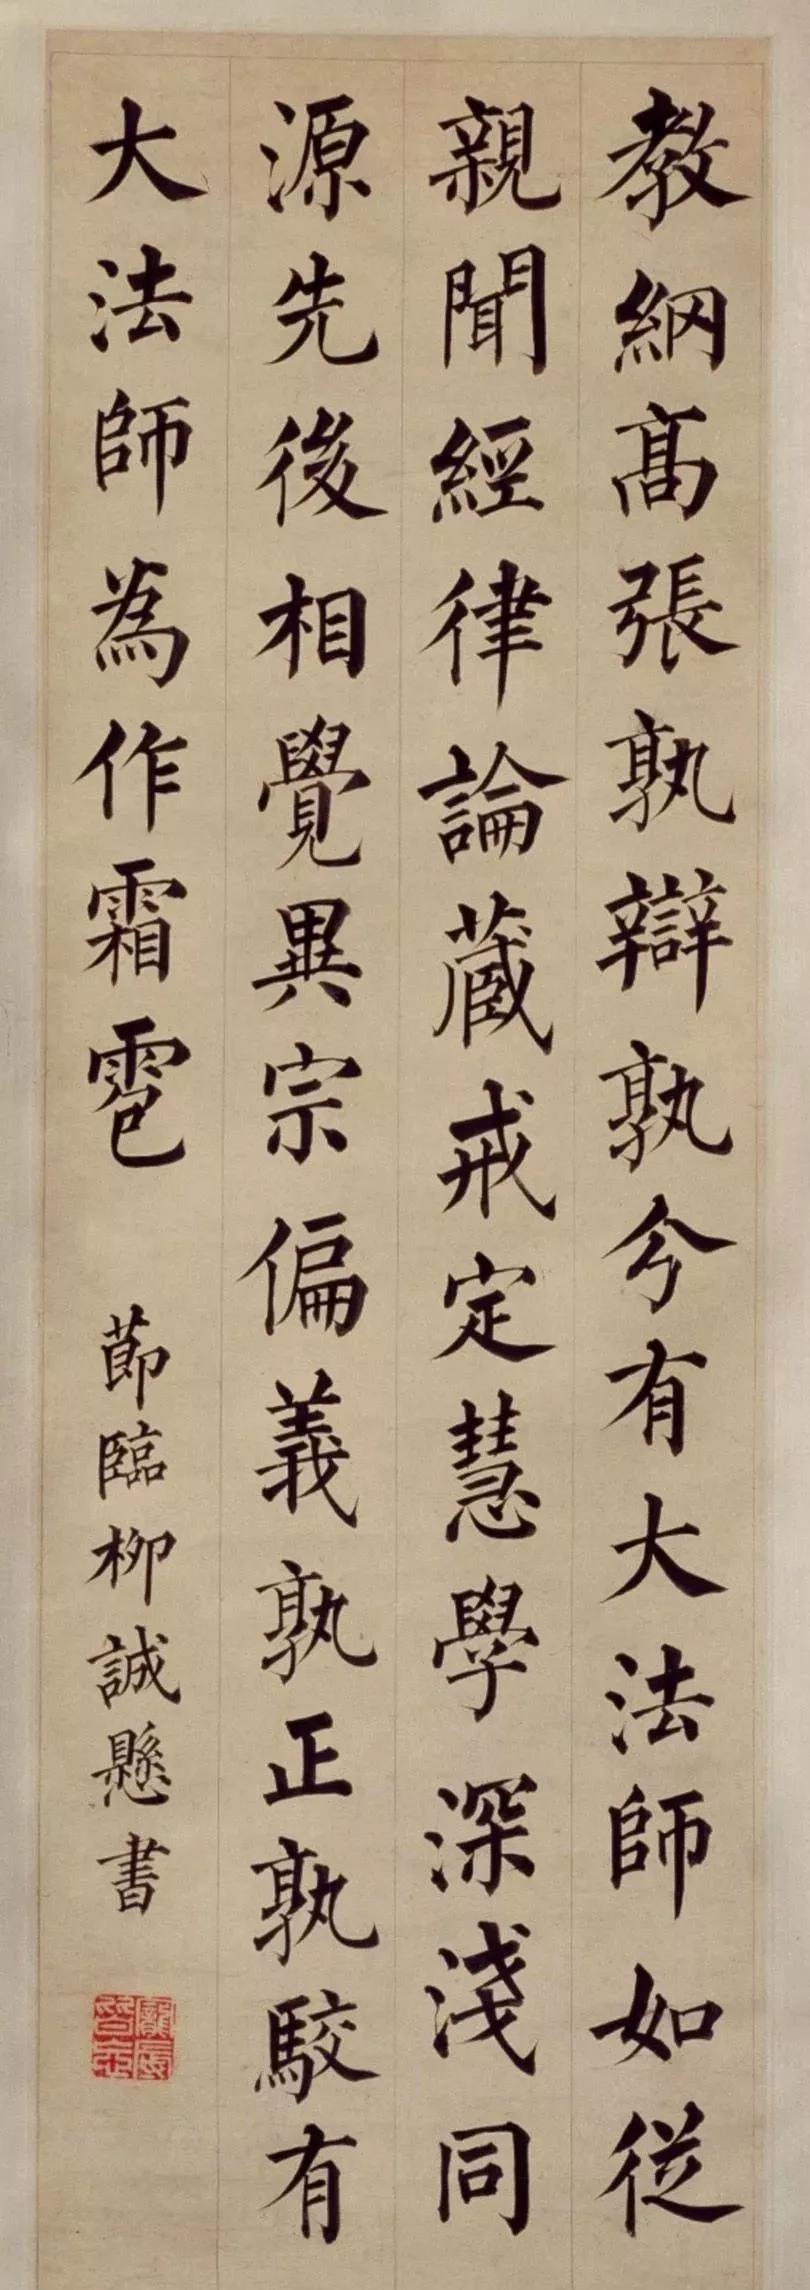 教綱髙張孰辯孰分有大法師如從
親聞經律論蔵戒定慧學深淺同
源先後相覺異宗偏義孰正孰駮有
大法師為作霜雹
莭臨柳誠懸書